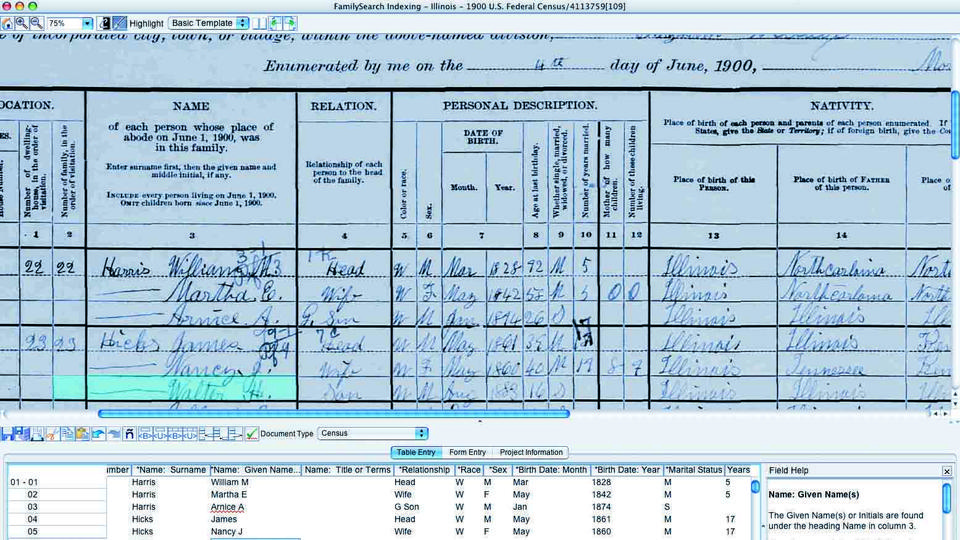 FamilySearch Indexing - Illinois - 1900 U.S. Federal Census/4113759[109]
75% Highlight Basic Template
of incorporated city, town, or village, within the above-named division,
Enumerated by me on the 4th day of June, 1900,
OCATION. NAME RELATION. PERSONAL DESCRIPTION. NATIVITY.
of each person whose place of abode on June 1, 1900, was in this family.
Enter surname first, then the given name and middle initial, if any.
INCLUDE every person living on June 1, 1900.
OMIT children born since June 1, 1900.
Number of dwelling-house, in the order of visitation.
Number of family, in the order of visitation.
Relationship of each person to the head of the family.
Color or race.
Sex.
DATE OF BIRTH.
Month. Year.
Age at last birthday.
Whether single, married, widowed, or divorced.
Number of years married.
Mother of how many children.
Number of these children living.
Place of birth of each person and parents of each person enumerated. If
States, give the State or Territory; if of foreign birth, give the
Place of birth of this PERSON.
Place of birth of FATHER of this person.
Place o
1 2 3 4 5 6 7 8 9 10 11 12 13 14
22 22 Harris William M Head W M Mar 1828 72 M 5 Illinois North carolina
Martha E. Wife W F May 1842 M 5 0 0 Illinois North carolina
Arnice A. G. Son W M 26 S Illinois Illinois
23 23 Hicks James Head W M May 1861 39 M Illinois Illinois
Nancy J. Wife W F May 1860 40 M 17 8 7 Illinois Tennessee
Walter H. Son W M Aug 1883 16 S Illinois Illinois
Document Type Census
Table Entry Form Entry Project Information
umber *Name: Surname *Name: Given Name... Name: Title or Terms *Relationship *Race *Sex *Birth Date: Month *Birth Date: Year *Marital Status Years
01 - 01 Harris William M Head W M Mar 1828 M 5
02 Harris Martha E Wife W F May 1842 M 5
03 Harris Arnice A G Son W M Jan 1874 S
04 Hicks James Head W M May 1861 M 17
05 Hicks Nancy J Wife W F May 1860 M 17
Field Help
Name: Given Name(s)
The Given Name(s) or Initials are found
under the heading Name in column 3.